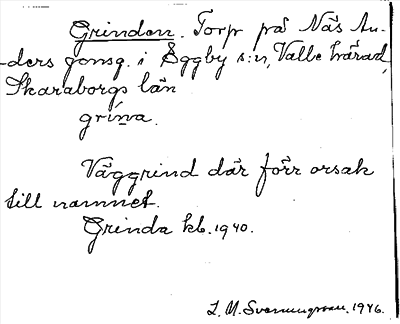 Grinden. Torp på Näs An-
ders gonsg. i Äggby s:n, Valle härad,
Skaraborgs län
grína.
Väggrind där förr orsak
till namnet.
Grinda kb. 1940.
L. M. Svenungsson. 1946.